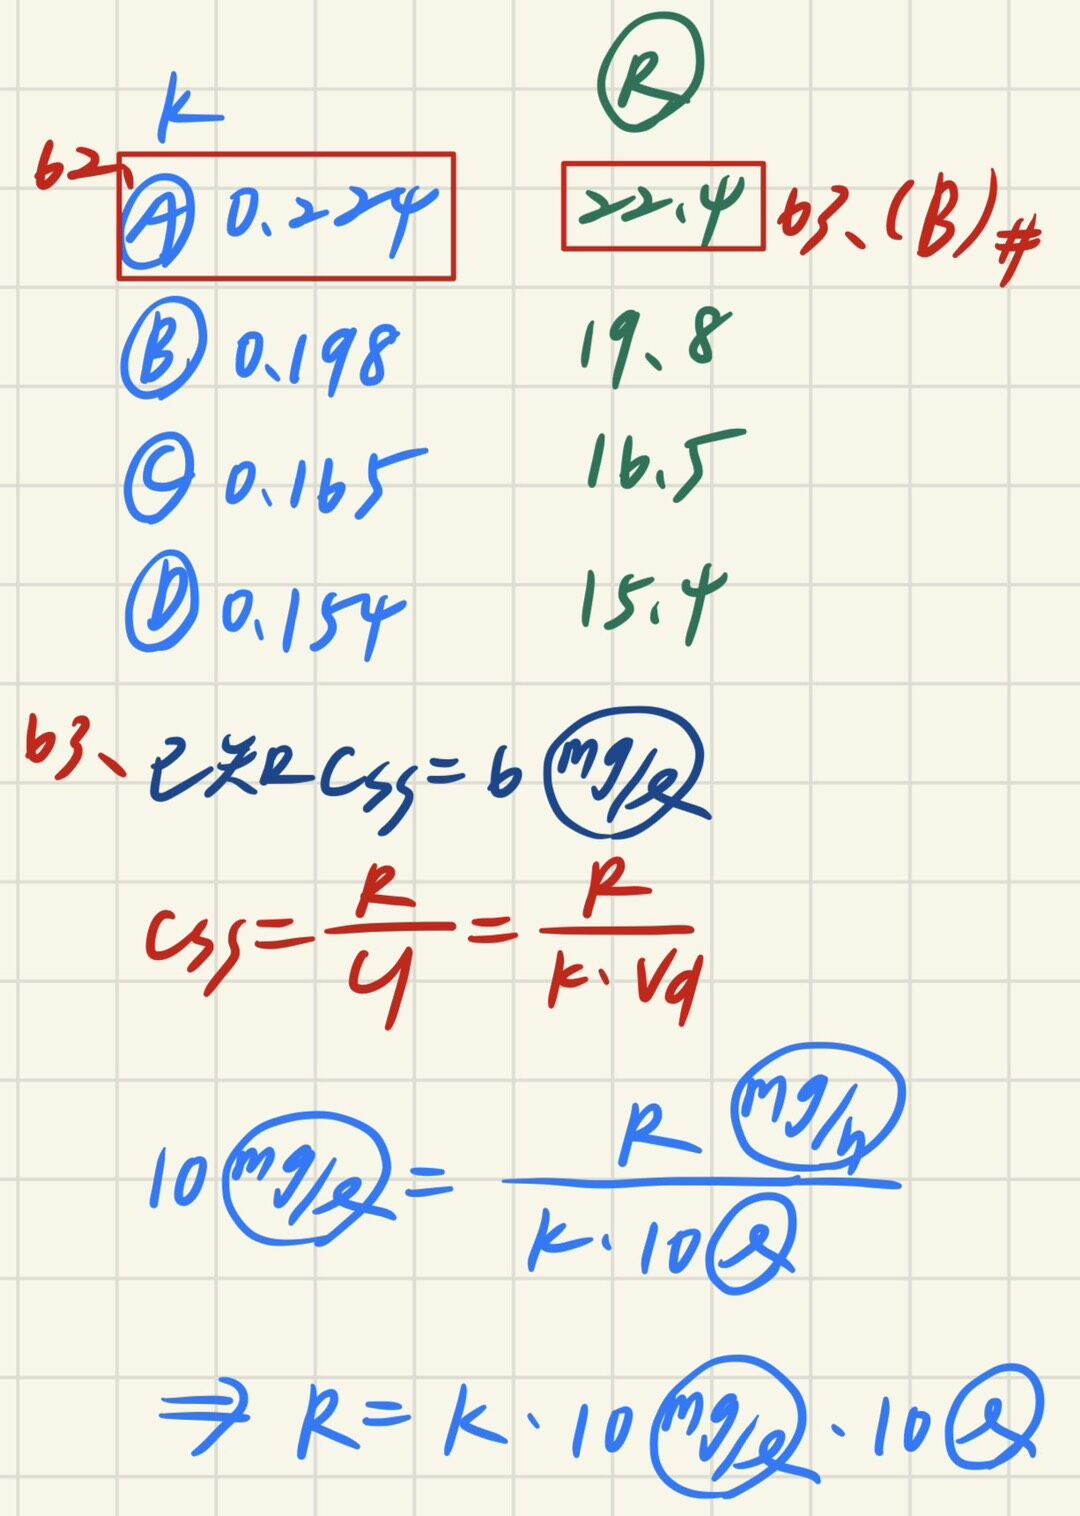 k R
62、 A 0.224 22.4 63、(B)#
B 0.198 19.8
C 0.165 16.5
D 0.154 15.4
63、 已知 Css = 6 mg/ℓ
Css = R/Cl = R/k·Vd
10 mg/ℓ = R mg/h / k·10 ℓ
⇒ R = k·10 mg/ℓ·10 ℓ